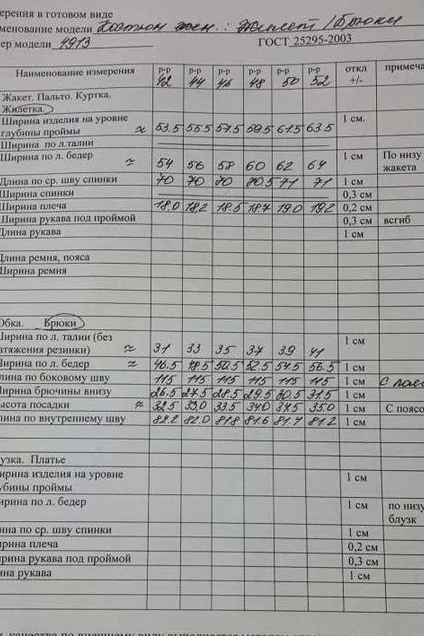 ерения в готовом виде
менование модели Костюм жен.: Жилет/Брюки
ер модели 4913 ГОСТ 25295-2003
Наименование измерения р-р 42 р-р 44 р-р 46 р-р 48 р-р 50 р-р 52 откл +/- примеча
Жакет. Пальто. Куртка.
Жилетка.
Ширина изделия на уровне
глубины проймы ≈ 53.5 55.5 57.5 59.5 61.5 63.5 1 см.
Ширина по л.талии
Ширина по л. бедер ≈ 54 56 58 60 62 64 1 см По низу
жакета
Длина по ср. шву спинки 70 70 70 70.5 71 71 1 см
Ширина спинки 0,3 см
Ширина плеча 18.0 18.2 18.5 18.7 19.0 19.2 0,2 см
Ширина рукава под проймой 0,3 см всгиб
Длина рукава 1 см
Длина ремня, пояса
Ширина ремня
Юбка. Брюки
Ширина по л. талии (без
атяжения резинки) ≈ 31 33 35 37 39 41 1 см
Ширина по л. бедер ≈ 46.5 48.5 50.5 52.5 54.5 56.5 1 см
лина по боковому шву 115 115 115 115 115 115 1 см С пояс
Ширина брючины внизу 26.5 27.5 28.5 29.5 30.5 31.5 1 см
ысота посадки ≈ 32.5 33.0 33.5 34.0 34.5 35.0 1 см С поясо
лина по внутреннему шву 82.2 82.0 81.8 81.6 81.4 81.2 1 см
узка. Платье
ирина изделия на уровне
убины проймы 1 см
ирина по л. бедер 1 см по низу
блузк
ина по ср. шву спинки 1 см
ирина плеча 0,2 см
ирина рукава под проймой 0,3 см
ина рукава 1 см